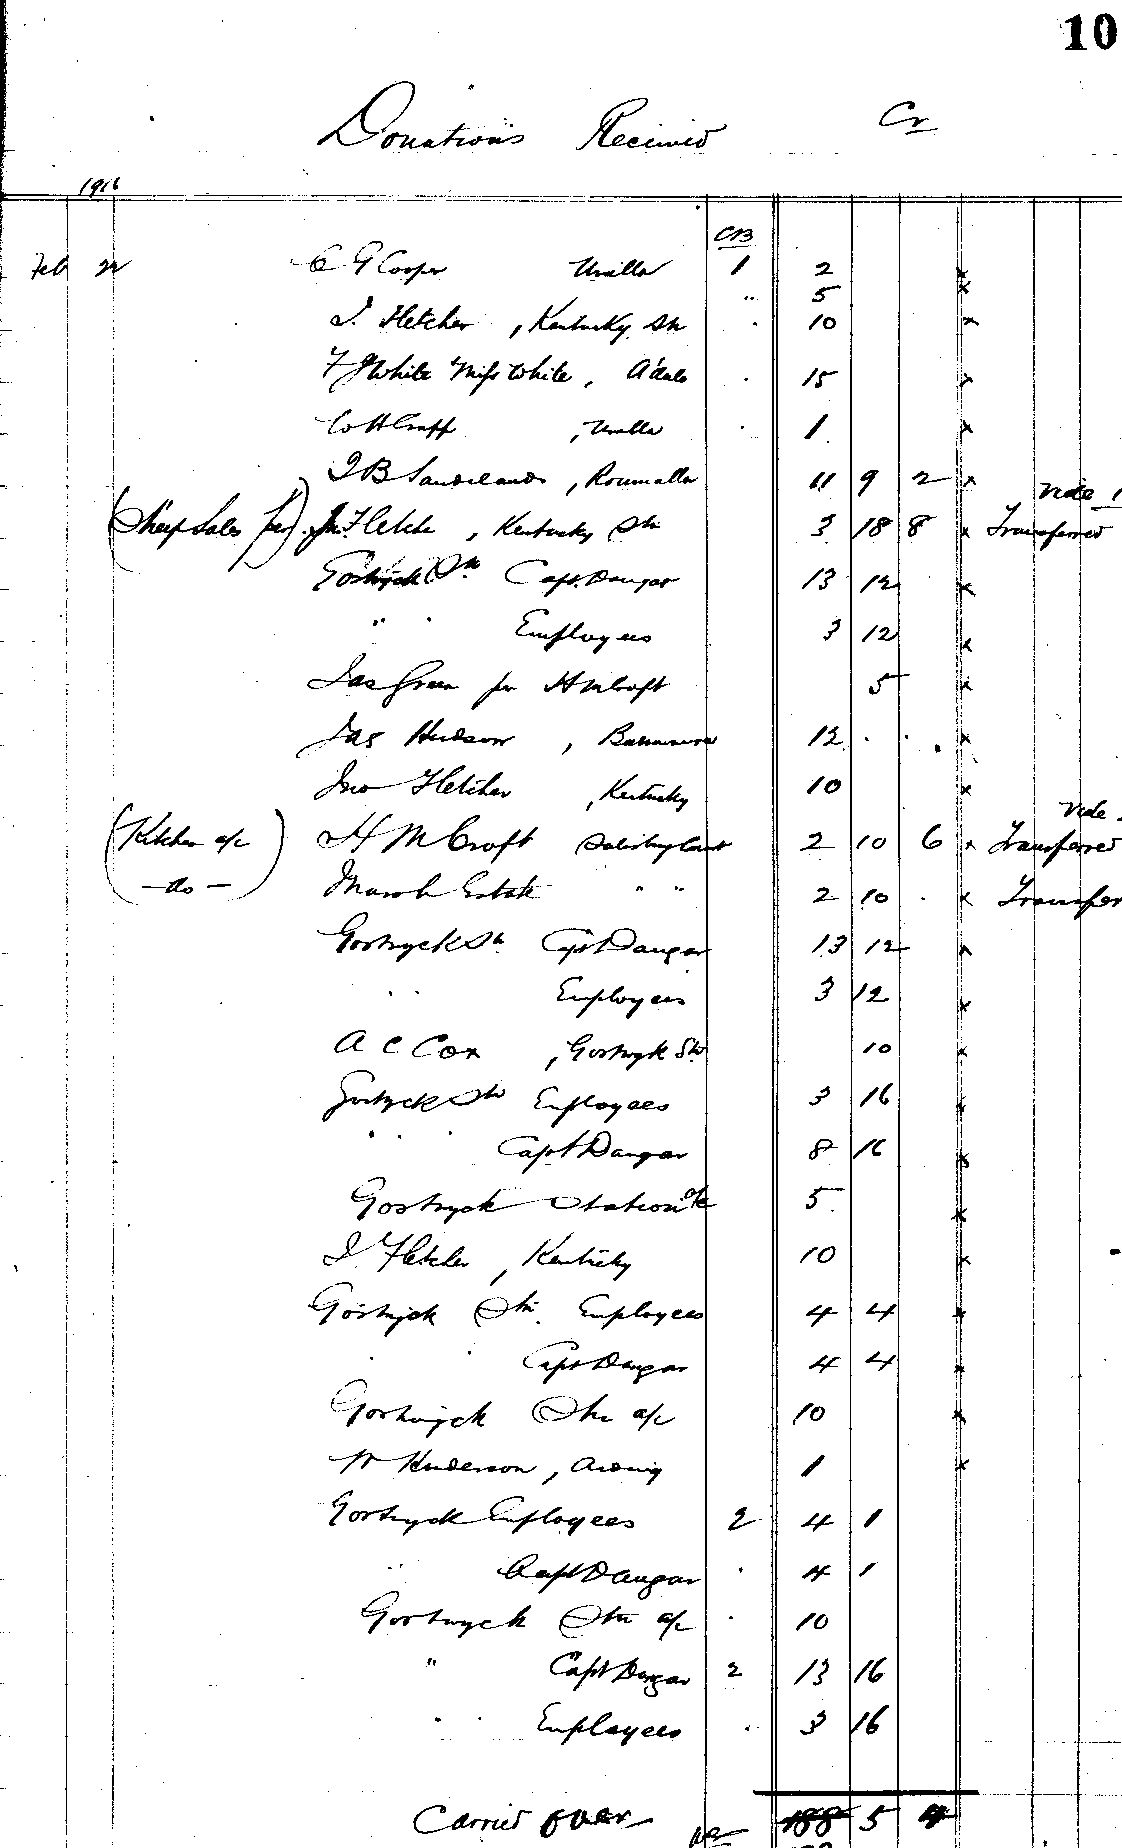 10
Donations Received Cr
1916
CB
Feb 22 C G Cooper Uralla 1 2 x
" 5 x
J. Fletcher , Kentucky Stn 10 x
F J White Miss White , A'dale 15 x
Uralla 1 x
J B Sandilands , Roumalla 11 9 2 x
(Sheep Sales per) Jn Fletcher , Kentucky Stn 3 18 8 x Transferred Vide
Gostwyck Stn Capt. Dangar 13 12 x
" " Employees 3 12 x
Jas Green per H M Croft 5 x
Jas Hudson , 12 . . x
Jno Fletcher , Kentucky 10 x
(Kitchen a/c) H M Croft Salisbury Court 2 10 6 x Transferred Vide
( - do - ) Marsh Estate " " 2 10 . x Transfer
Gostwyck Stn Capt Dangar 13 12 x
" " Employees 3 12 x
A C Cox , Gostwyk Stn 10 x
Gostwyck Stn Employees 3 16 x
" " Capt Dangar 8 16 x
Gostwyck Station a/c 5 x
J Fletcher , Kentucky 10 x
Gostwyck Stn. Employees 4 4 x
" " Capt Dangar 4 4 x
Gostwyck Stn a/c 10 x
Anderson , Arding 1 x
Gostwyck Employees 2 4 1
" Capt Dangar " 4 1
Gostwyck Stn a/c " 10
" Capt Dangar 2 13 16
" " Employees " 3 16
Carried over 188 5 4